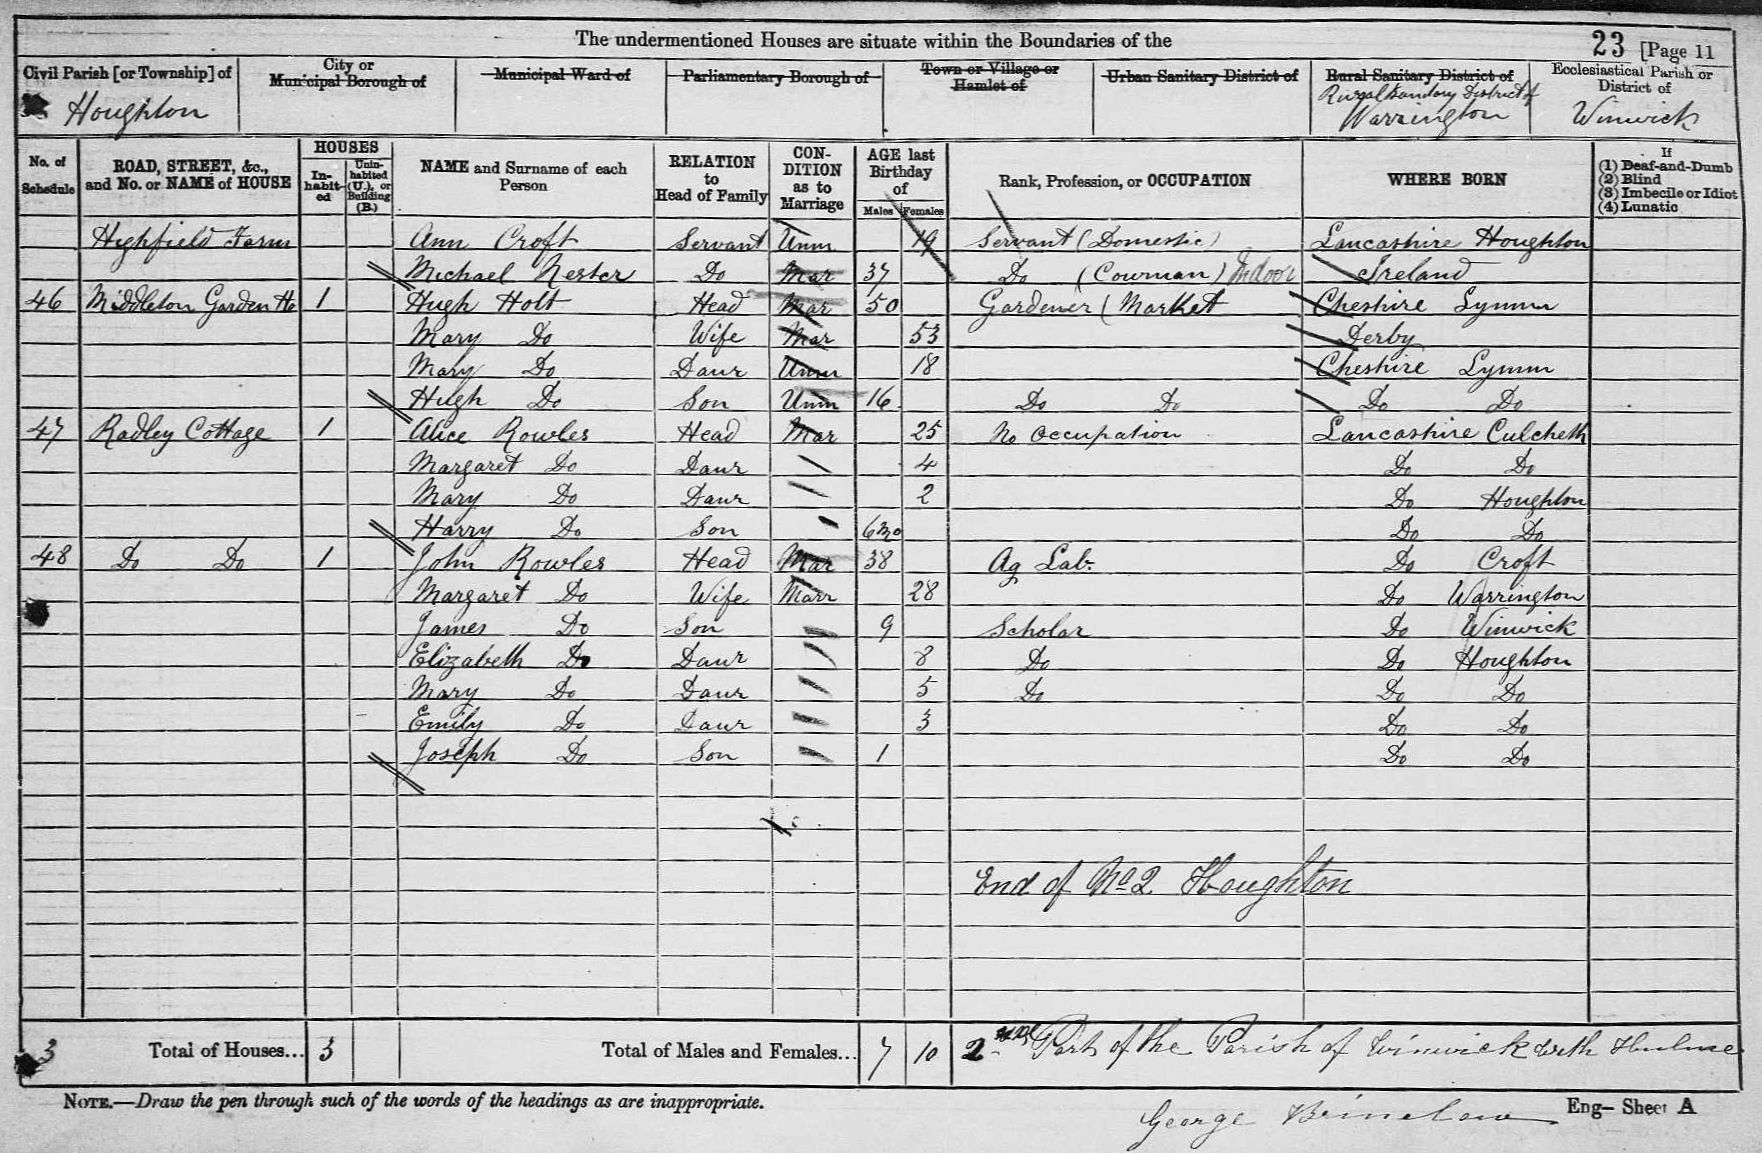 The undermentioned Houses are situate within the Boundaries of the
23 [Page 11
Civil Parish [or Township] of
Houghton
City or Municipal Borough of
Municipal Ward of
Parliamentary Borough of
Town or Village or Hamlet of
Urban Sanitary District of
Rural Sanitary District of
Rural Sanitary District of
Warrington
Ecclesiastical Parish or District of
Winwick
No. of Schedule
ROAD, STREET, &c., and No. or NAME of HOUSE
HOUSES
In-habit-ed
Unin-habited (U.), or Building (B.)
NAME and Surname of each Person
RELATION to Head of Family
CON-DITION as to Marriage
AGE last Birthday of
Males Females
Rank, Profession, or OCCUPATION
WHERE BORN
If
(1) Deaf-and-Dumb
(2) Blind
(3) Imbecile or Idiot
(4) Lunatic
Highfield Farm Ann Croft Servant Unm 19 Servant (Domestic) Lancashire Houghton
Michael Do Mar 37 Do (Cowman) Indoor Ireland
46 Middleton Garden Ho 1 Hugh Holt Head Mar 50 Gardener (Market Cheshire Lymm
Mary Do Wife Mar 53 Derby
Mary Do Daur Unm 18 Cheshire Lymm
Hugh Do Son Unm 16 Do Do Do Do
47 Radley Cottage 1 Alice Rowles Head Mar 25 No Occupation Lancashire Culcheth
Margaret Do Daur 4 Do Do
Mary Do Daur 2 Do Houghton
Harry Do Son 6mo Do Do
48 Do Do 1 John Rowles Head Mar 38 Ag Lab. Do Croft
Margaret Do Wife Marr 28 Do Warrington
James Do Son 9 Scholar Do Winwick
Elizabeth Do Daur 8 Do Do Houghton
Mary Do Daur 5 Do Do Do
Emily Do Daur 3 Do Do
Joseph Do Son 1 Do Do
End of No 2 Houghton
3 Total of Houses... 3 Total of Males and Females... 7 10 2 Part of the Parish of Winwick with Hulme
NOTE.—Draw the pen through such of the words of the headings as are inappropriate.
Eng- Sheet A
George